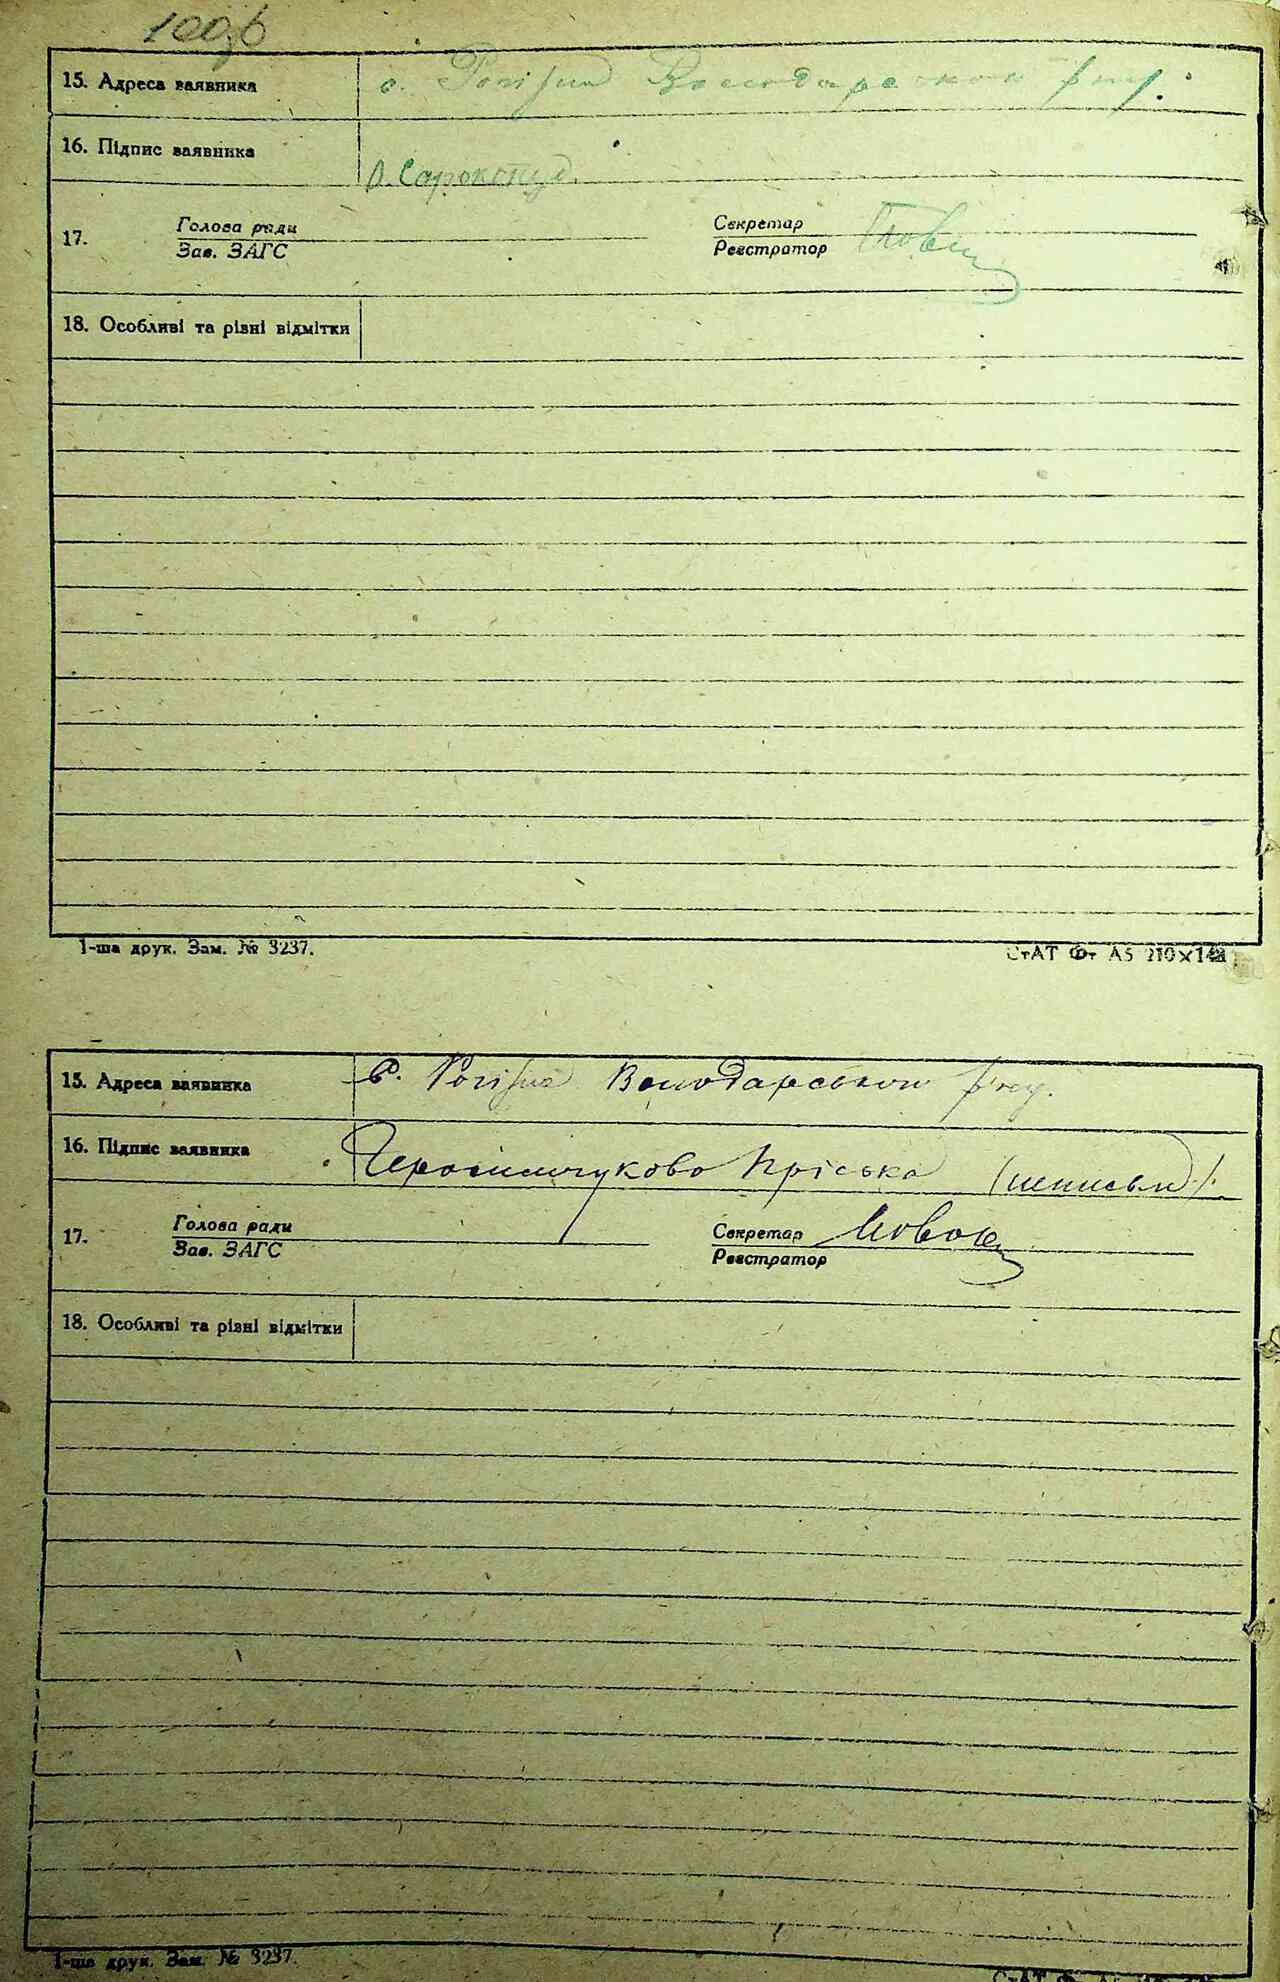 100зв
15. Адреса заявника с. Рогізна Володарського р-ну.
16. Підпис заявника
О. Сарокопуд.
17. Голова ради Секретар
Зав. ЗАГС Реєстратор
18. Особливі та різні відмітки
1-ша друк. Зам. № 3237.
СтАТ Фт А5 210×148
15. Адреса заявника с. Рогізна Володарського р-ну.
16. Підпис заявника Герасимчукова Пріська (неписьм).
17. Голова ради Секретар
Зав. ЗАГС Реєстратор
18. Особливі та різні відмітки
1-ша друк. Зам. № 3237.